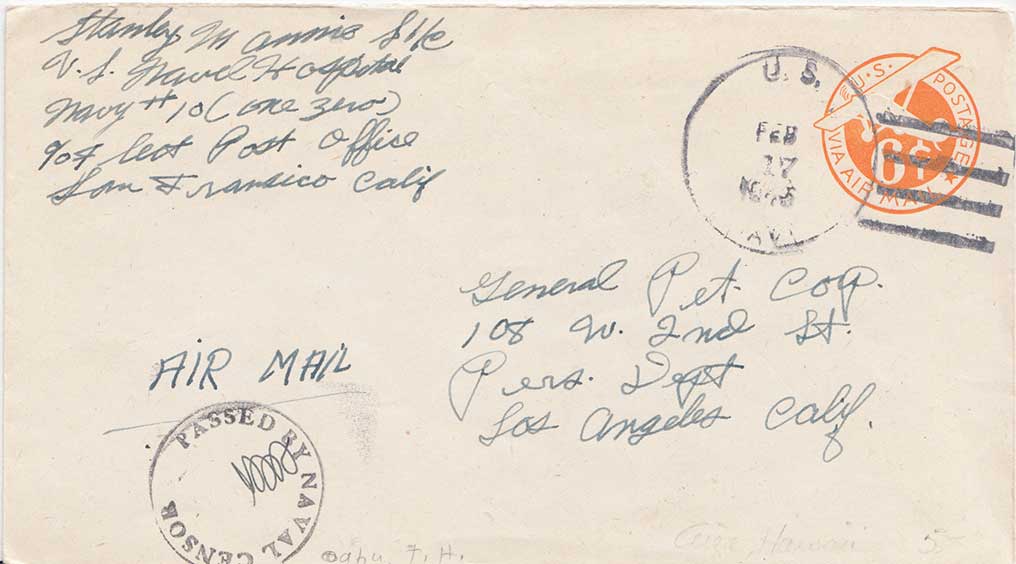 Stanley Mannis S1/c
U.S. Navel Hospital
Navy # 10 (one zero)
℅ Flect Post Office
San Fransico Calif
U. S.
FEB
17
1945
NAVY
U.S. POSTAGE
6¢
VIA AIR MAIL
General Pet. Corp.
108 W. 2nd St.
Pers. Dept
Los Angeles Calif.
AIR MAIL
PASSED BY NAVAL CENSOR
Oahu, T. H.
Hawaii 5-